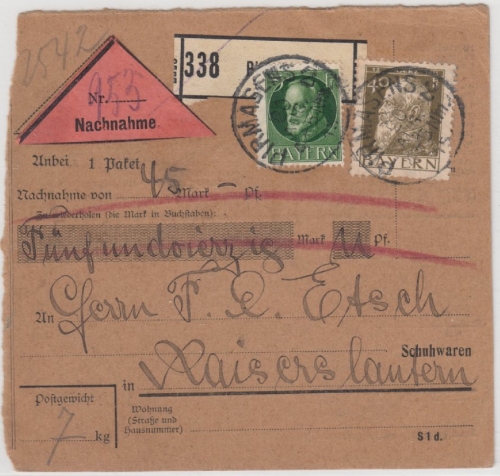 2542
338
Nr. 953
Nachnahme
BAYERN
40
BAYERN
PIRMASENS
PIRMASENS
Anbei 1 Paket
Nachnahme von 45 Mark – Pf.
Zu wiederholen (die Mark in Buchstaben):
Fünfundvierzig Mark Pf.
An Herrn F. R. Etsch
Schuhwaren
in Kaiserslautern
Postgewicht
7 kg
Wohnung
(Straße und
Hausnummer)
S 1 d.